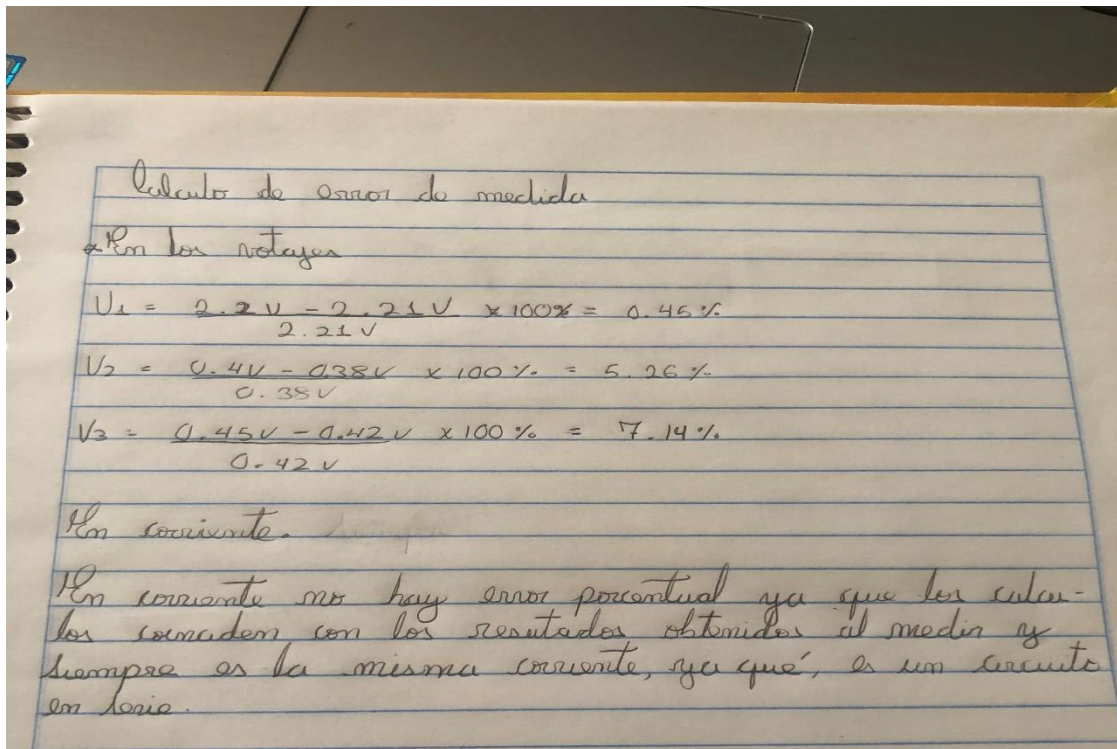 Calculo de error de medida
*En los votajes
V1 = 2.2V - 2.21V x 100% = 0.45%
2.21V
V2 = 0.4V - 0.38V x 100% = 5.26%
0.38V
V3 = 0.45V - 0.42V x 100% = 7.14%
0.42V
En corriente.
En corriente no hay error porcentual ya que los calcu-
los coinciden con los resutados obtenidos al medir y
siempre es la misma corriente, ya qué, es un circuito
en serie.